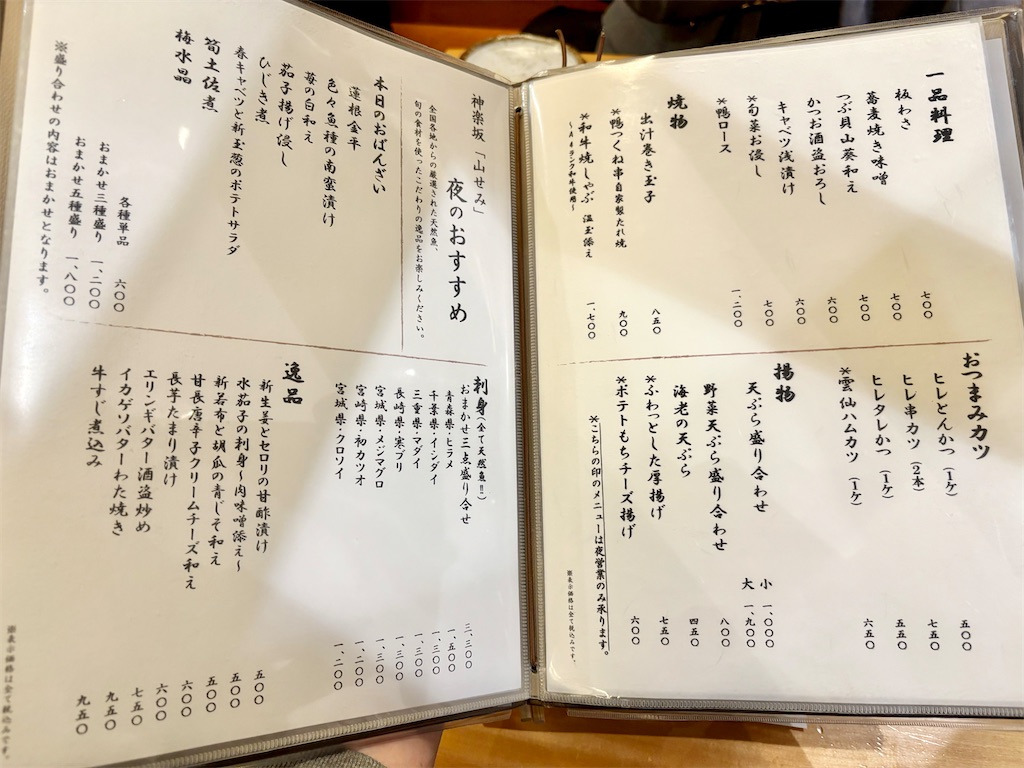 一品料理
板わさ 七〇〇
蕎麦焼き味噌 七〇〇
つぶ貝山葵和え 七〇〇
かつお酒盗おろし 六〇〇
キャベツ浅漬け 六〇〇
*旬菜お浸し 七〇〇
*鴨ロース 一、二〇〇
焼物
出汁巻き玉子 八五〇
*鴨つくね串自家製たれ焼 九〇〇
*和牛焼しゃぶ 温玉添え 一、七〇〇
～A4ランク和牛使用～
おつまみカツ
ヒレとんかつ(1ヶ) 五〇〇
ヒレ串カツ(2本) 七五〇
ヒレタレかつ(1ヶ) 五五〇
*雲仙ハムカツ(1ヶ) 六五〇
揚物
天ぷら盛り合わせ 小 一、〇〇〇
大 一、九〇〇
野菜天ぷら盛り合わせ 八〇〇
海老の天ぷら 四五〇
*ふわっとした厚揚げ 七五〇
*ポテトもちチーズ揚げ 六〇〇
*こちらの印のメニューは夜営業のみ承ります。
※表示価格は全て税込みです。
神楽坂「山せみ」
夜のおすすめ
全国各地からの厳選された天然魚、
旬の食材を使ったこだわりの逸品をお楽しみください。
本日のおばんざい
蓮根金平
色々魚種の南蛮漬け
苺の白和え
茄子揚げ浸し
ひじき煮
春キャベツと新玉葱のポテトサラダ
筍土佐煮
梅水晶
各種単品 六〇〇
おまかせ三種盛り 一、二〇〇
おまかせ五種盛り 一、八〇〇
※盛り合わせの内容はおまかせとなります。
刺身(全て天然魚!!)
おまかせ三点盛り合せ 三、三〇〇
青森県・ヒラメ 一、五〇〇
千葉県・イシダイ 一、三〇〇
三重県・マダイ 一、三〇〇
長崎県・寒ブリ 一、三〇〇
宮城県・メジマグロ 一、三〇〇
宮崎県・初カツオ 一、二〇〇
宮城県・クロソイ 一、二〇〇
逸品
新生姜とセロリの甘酢漬け 五〇〇
水茄子の刺身～肉味噌添え～ 五〇〇
新若布と胡瓜の青じそ和え 五〇〇
甘長唐辛子クリームチーズ和え 六〇〇
長芋たまり漬け 六〇〇
エリンギバター酒盗炒め 七五〇
イカゲソバターわた焼き 九五〇
牛すじ煮込み 九五〇
※表示価格は全て税込みです。